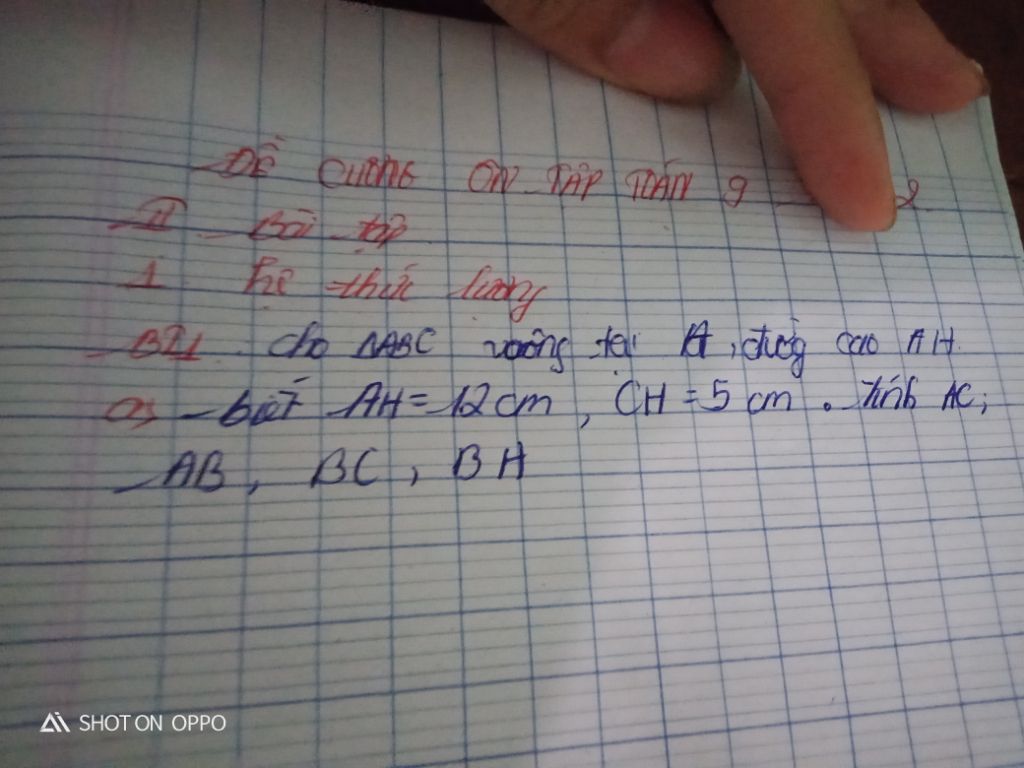 ĐỀ CƯƠNG ÔN TẬP TOÁN 9 2
II Bài tập
1 hệ thức lượng
BT1 cho ΔABC vuông tại A, đường cao AH
a, biết AH = 12 cm, CH = 5 cm. Tính AC;
AB, BC, BH
SHOT ON OPPO